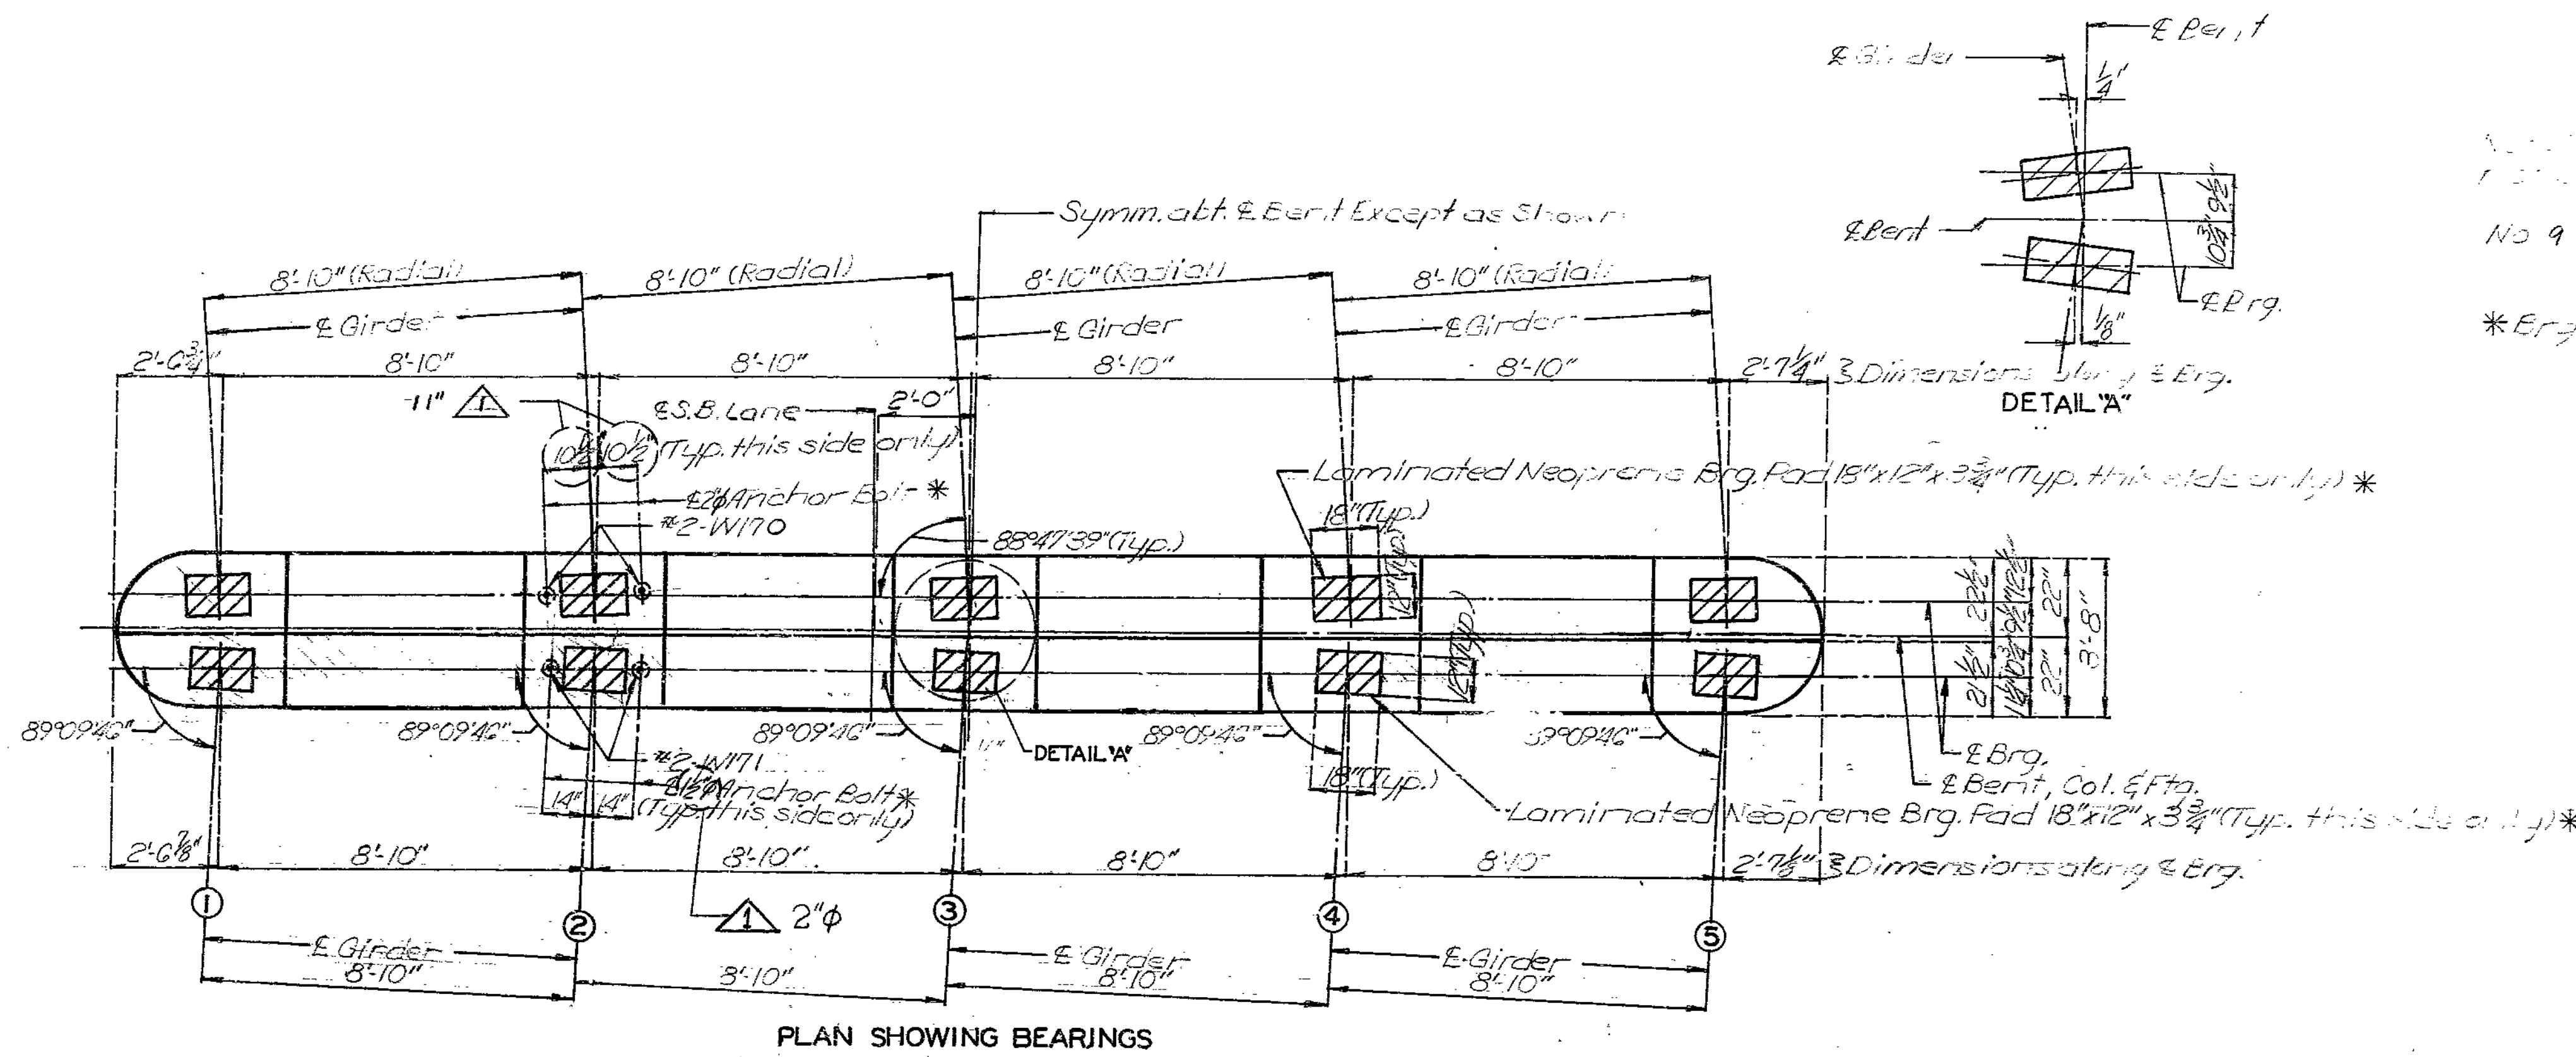 ℄ Bent
℄ Girder
1/4"
℄ Bent
9½"
10¾"
℄ Brg.
1/8"
DETAIL "A"
No 9
Symm. abt. ℄ Bent Except as Shown
8'-10" (Radial)
8'-10" (Radial)
8'-10" (Radial)
8'-10" (Radial)
℄ Girder
℄ Girder
℄ Girder
2'-6¾"
8'-10"
8'-10"
8'-10"
8'-10"
2'-7¼"
Dimensions along ℄ Brg.
11" 1
℄ S.B. Lane
2'-0"
10½" 10½" (Typ. this side only)
℄ 2"φ Anchor Bolt *
#2-W170
88°47'39" (Typ.)
Laminated Neoprene Brg. Pad 18"x12"x3¾" (Typ. this side only) *
18" (Typ.)
12" (Typ.)
12" (Typ.)
22½"
12½"
22"
9½"
3'-8"
21½"
10¾"
22"
89°09'46"
89°09'46"
89°09'46"
89°09'46"
89°09'46"
#2-W171
Anchor Bolt *
14" 14" (Typ. this side only)
DETAIL "A"
18" (Typ.)
℄ Brg.
℄ Bent, Col. & Ftg.
Laminated Neoprene Brg. Pad 18"x12"x3¾" (Typ. this side only) *
2'-6⅞"
8'-10"
8'-10"
8'-10"
8'-10"
2'-7⅛"
Dimensions along ℄ Brg.
1 2"φ
1
2
3
4
5
℄ Girder
℄ Girder
℄ Girder
8'-10"
8'-10"
8'-10"
8'-10"
PLAN SHOWING BEARINGS